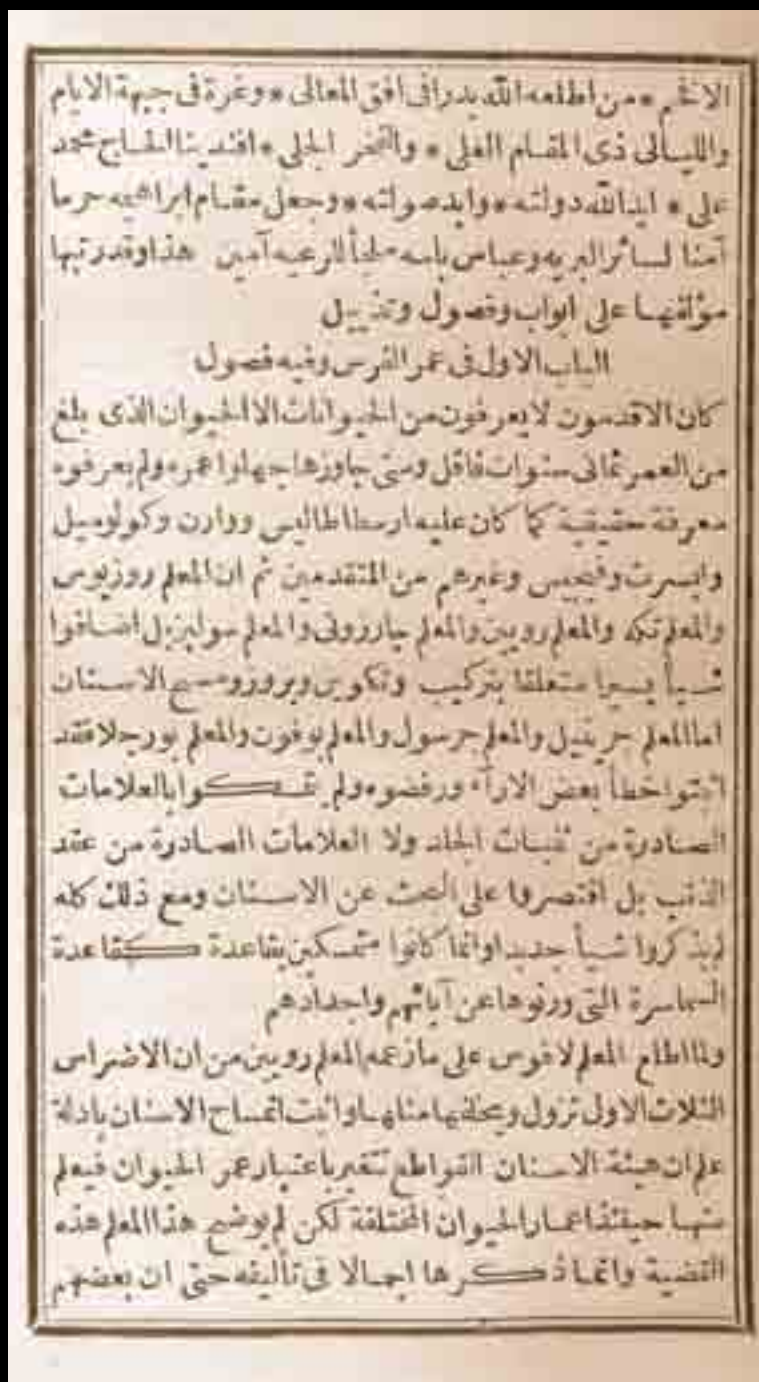 الافخم * من اطلعه الله بدرا فى افق المعالى * وغرة فى جبهة الايام
والليالى ذى المقام العلى * والفخر الجلى * افندينا الحاج محمد
على * ايد الله دولته * وابد صولته * وجعل مقام ابراهيمه حرما
آمنا لسائر البريه وعباس باسه ملجأ للرعيه آمين هذا وقد رتبها
مؤلفها على ابواب وفصول وتذييل
الباب الاول فى عمر الفرس وفيه فصول
كان الاقدمون لا يعرفون من الحيوانات الا الحيوان الذى بلغ
من العمر ثمانى سنوات فاقل ومتى جاوزها جهلوا عمره ولم يعرفوه
معرفة حقيقية كما كان عليه ارسطاطاليس ووارن وكولوميل
وابسرت وفيجيس وغيرهم من المتقدمين ثم ان المعلم روزيوس
والمعلم تكه والمعلم روبين والمعلم جارزونى والمعلم سوليزيل اضافوا
شيأ يسيرا متعلقا بتركيب وتكوين وبروز ومسح الاسنان
اما المعلم جرينيل والمعلم جرسول والمعلم بوفون والمعلم بورجلا فقد
اثبتوا خطأ بعض الارآء ورفضوه ولم يتمسكوا بالعلامات
الصادرة من ثنيات الجلد ولا العلامات الصادرة من عقد
الذنب بل اقتصروا على البحث عن الاسنان ومع ذلك كله
لم يذكروا شيأ جديدا وانما كانوا متمسكين بقاعدة كقاعدة
السماسرة التى ورثوها عن آبائهم واجدادهم
ولما اطلع المعلم لافوس على ما زعمه المعلم روبين من ان الاضراس
الثلاث الاول تزول ويخلفها مثلها واثبت اتمساح الاسنان بادلة
علم ان هيئة الاسنان القواطع تتغير باعتبار عمر الحيوان فيعلم
منها حينئذ اعمار الحيوان المختلفة لكن لم يوضح هذا المعلم هذه
القضية وانما ذكرها اجمالا فى تأليفه حتى ان بعضهم